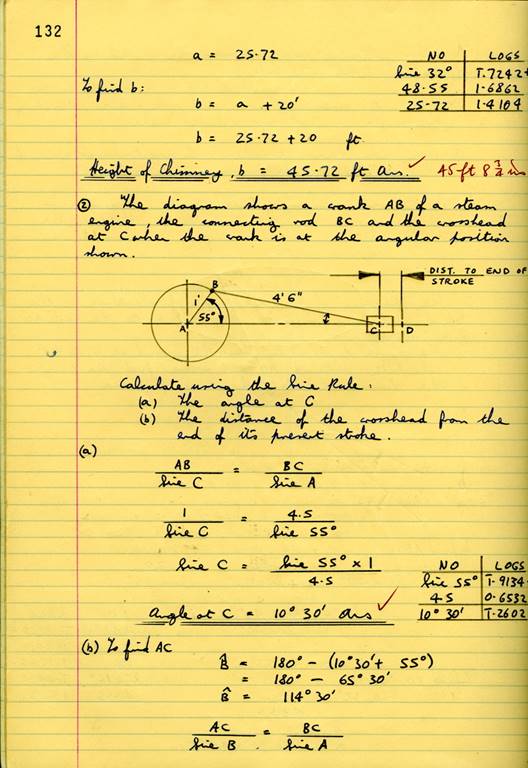 132
a = 25.72
NO LOGS
Sine 32° 1̄.7242
48.55 1.6862
25.72 1.4104
To find b:
b = a + 20'
b = 25.72 + 20 ft
Height of Chimney, b = 45.72 ft Ans. ✓ 45 ft 8 3/4 ins
② The diagram shows a crank AB of a steam
engine, the connecting rod BC and the crosshead
at C when the crank is at the angular position
shown.
DIST. TO END OF
STROKE
B
1'
4' 6"
A
55°
C
D
Calculate using the Sine Rule:
(a) The angle at C
(b) The distance of the crosshead from the
end of its present stroke.
(a)
AB/Sine C = BC/Sine A
1/Sine C = 4.5/Sine 55°
Sine C = Sine 55° x 1/4.5
NO LOGS
Sine 55° 1̄.9134
4.5 0.6532
10° 30' 1̄.2602
Angle at C = 10° 30' Ans ✓
(b) To find AC
B̂ = 180° - (10° 30' + 55°)
= 180° - 65° 30'
B̂ = 114° 30'
AC/Sine B = BC/Sine A